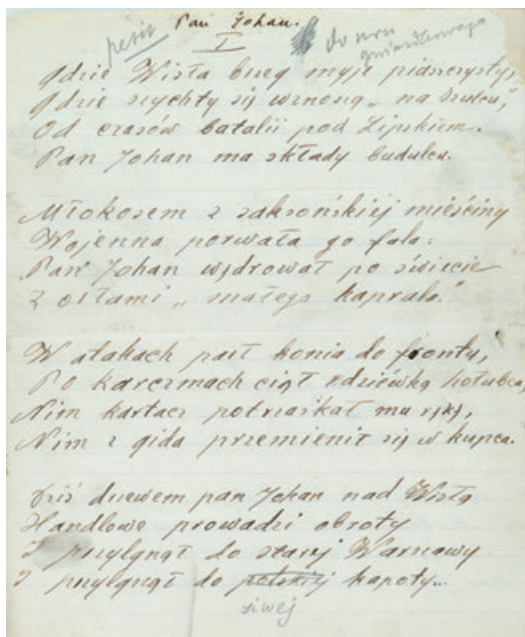 Pan Johan.
petit
do nru gwiazdkowego
I
Gdzie Wisła brzeg myje piaszczysty,
Gdzie szychty się wznoszą „na Szulcu,”
Od czasów batalii pod Lipskiem.
Pan Johan ma składy budulcu.
Młokosem z saksońskiéj mieściny
Wojenna porwała go fala:
Pan Johan wędrował po świecie
Z orłami „małego kaprala.”
W atakach parł konia do fronty,
Po karczmach ciął z dziewką hołubca,
Nim kartacz potrzaskał mu rękę,
Nim z gida przemienił się w kupca.
Dziś drzewem pan Johan nad Wisłą
Handlowe prowadzi obroty
I przylgnął do starej Warszawy
I przylgnął do polskiéj kapoty...
siwej